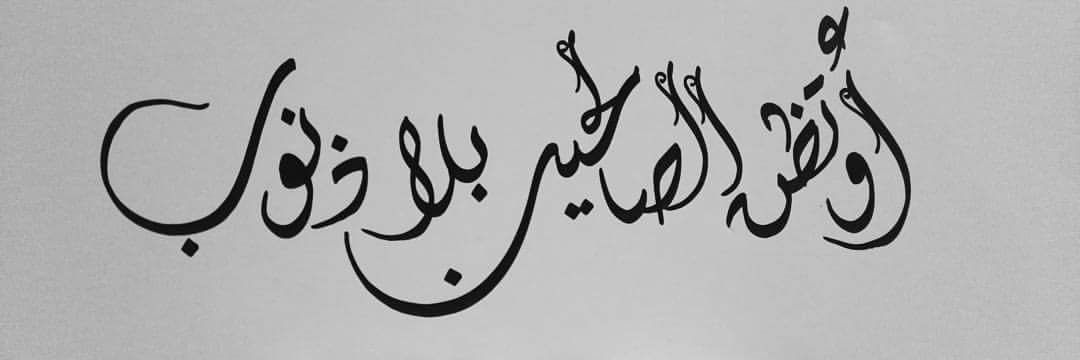 أوتظن الصالحين بلا ذنوب